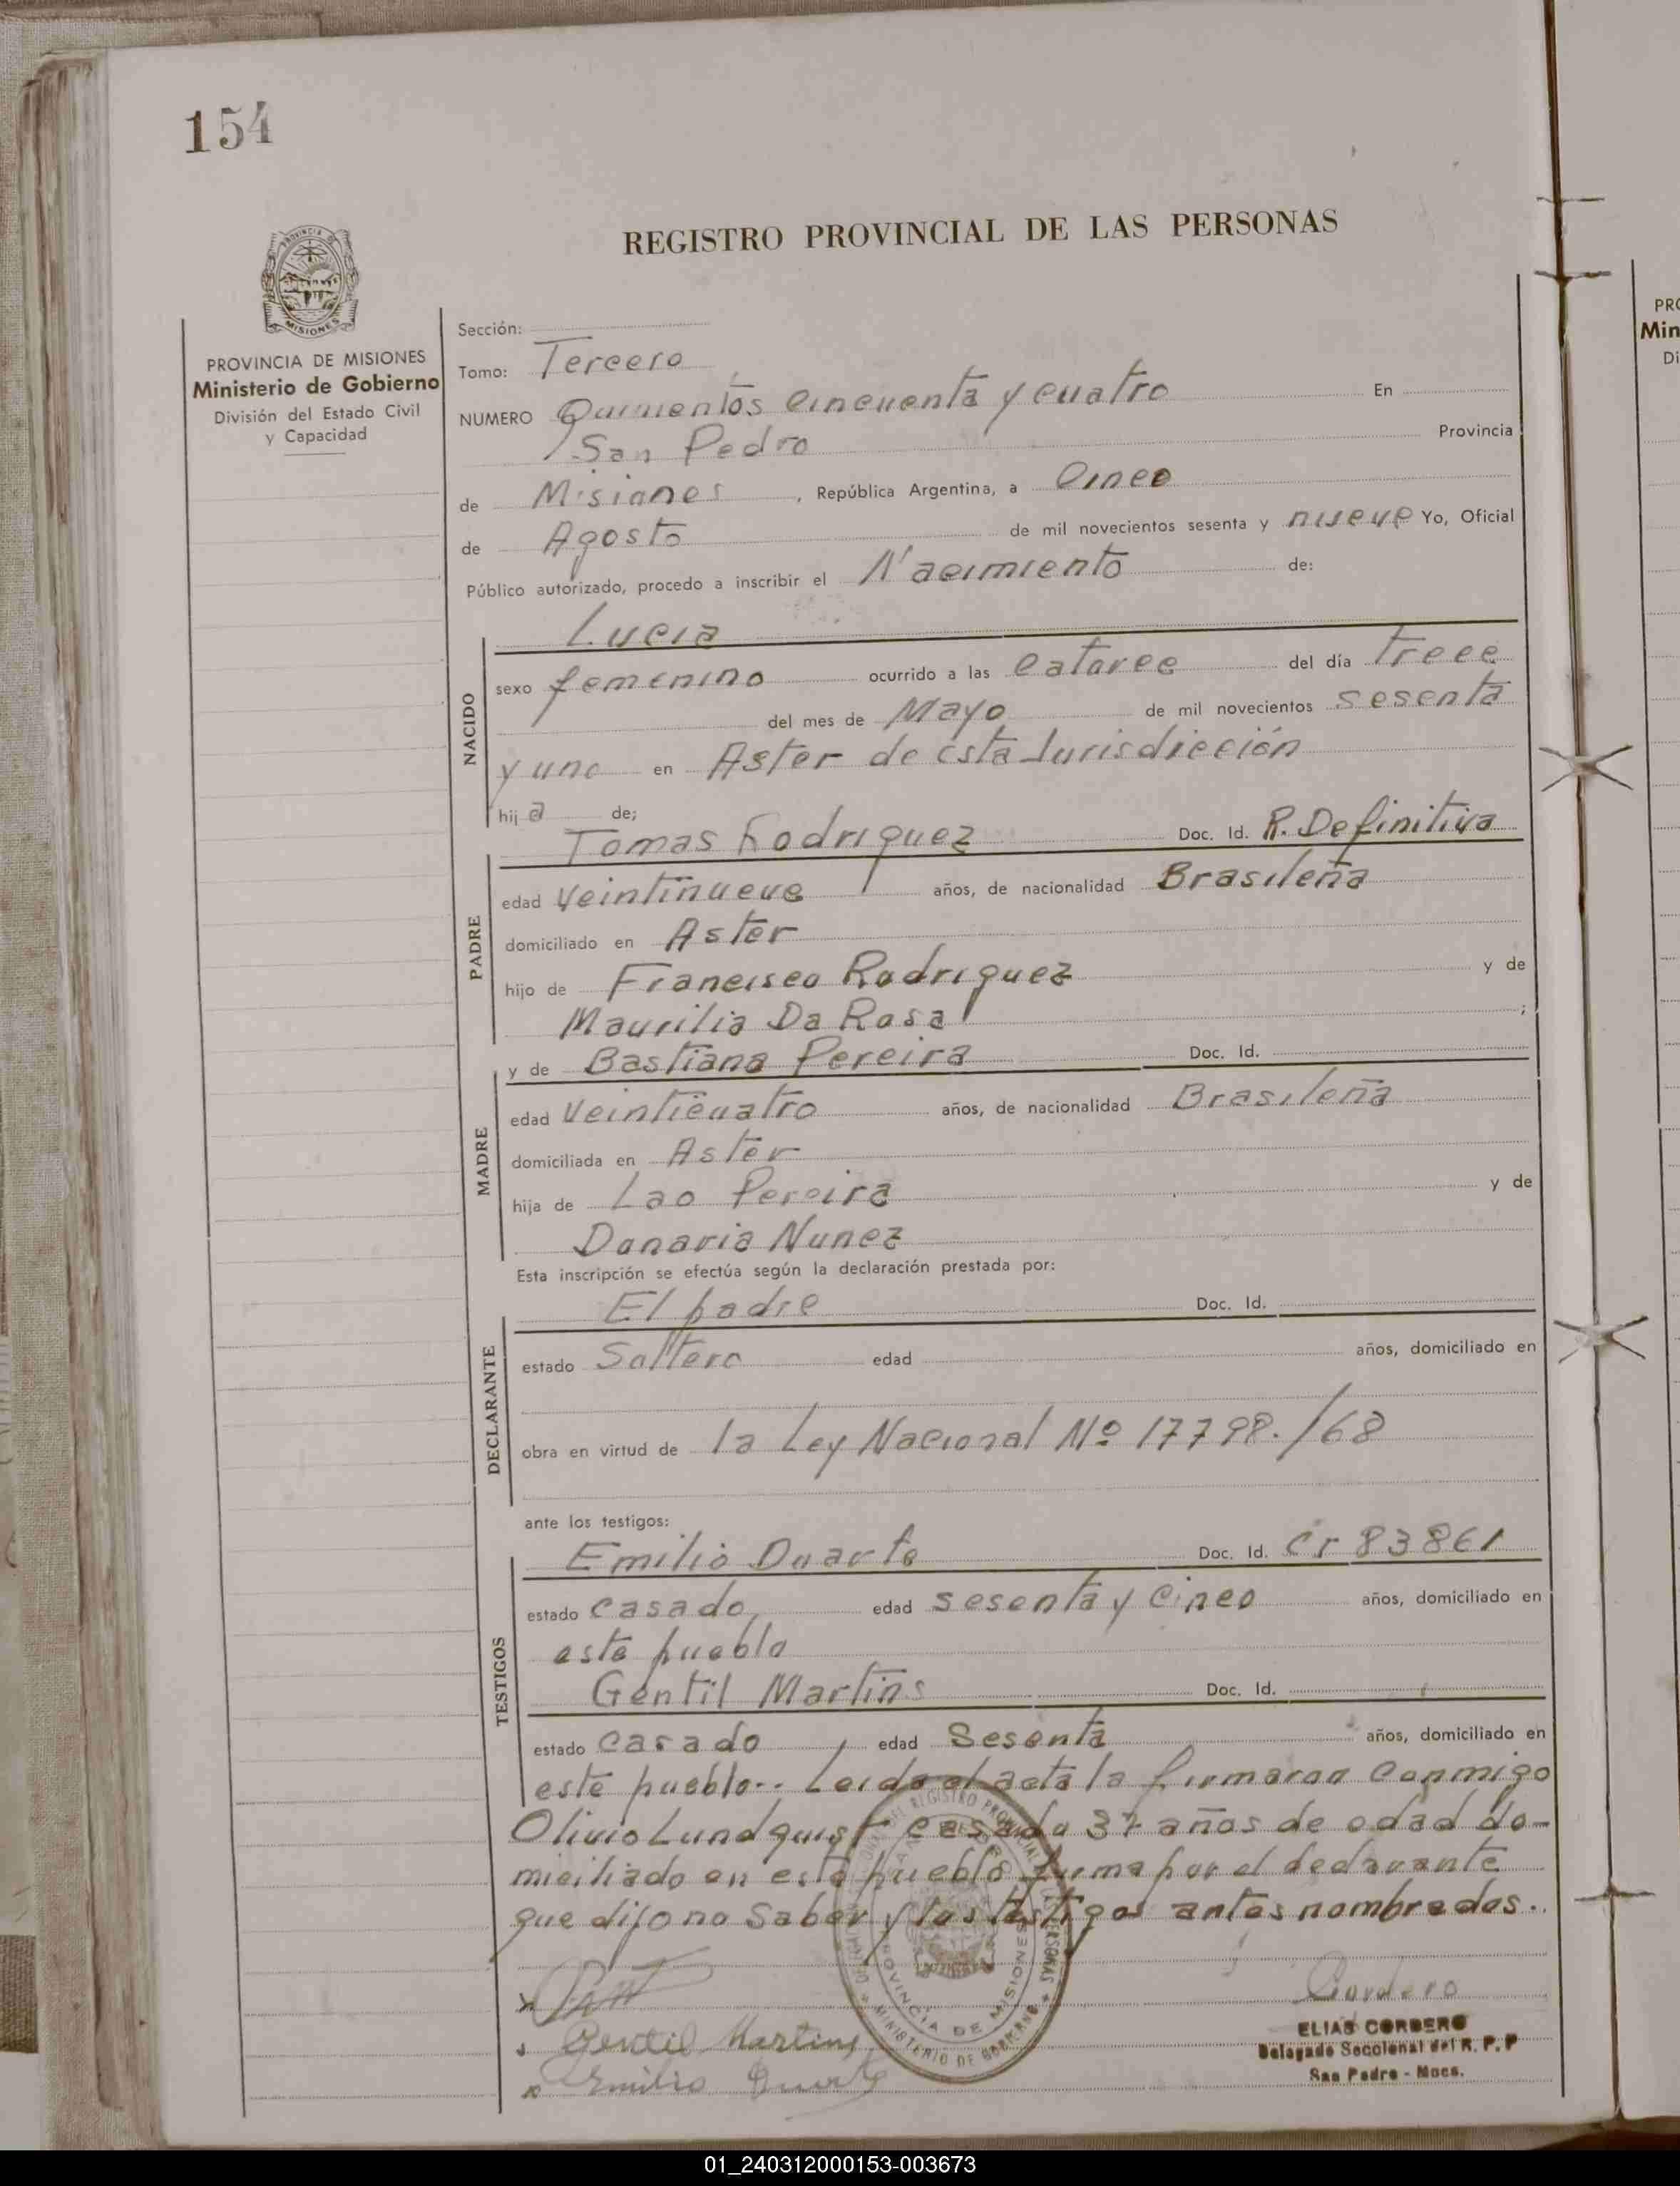 154
REGISTRO PROVINCIAL DE LAS PERSONAS
PROVINCIA DE MISIONES
Ministerio de Gobierno
División del Estado Civil
y Capacidad
Sección:
Tomo: Tercero
NUMERO Quinientos cincuenta y cuatro En
San Pedro Provincia
de Misiones, República Argentina, a Cinco
de Agosto de mil novecientos sesenta y nueve Yo, Oficial
Público autorizado, procedo a inscribir el Nacimiento de:
Lucia
NACIDO
sexo femenino ocurrido a las catorce del día trece
del mes de Mayo de mil novecientos sesenta
y uno en Aster de ésta Jurisdicción
hija de;
Tomas Rodriguez Doc. Id. R. Definitiva
PADRE
edad veintinueve años, de nacionalidad Brasileña
domiciliado en Aster
hijo de Francisco Rodriguez y de
Maurilia Da Rosa ;
y de Bastiana Pereira Doc. Id.
MADRE
edad veinticuatro años, de nacionalidad Brasileña
domiciliada en Aster
hija de Lao Pereira y de
Donaria Nunez
Esta inscripción se efectúa según la declaración prestada por:
El padre Doc. Id.
DECLARANTE
estado Soltero edad años, domiciliado en
obra en virtud de la Ley Nacional Nº 17798./68
ante los testigos:
Emilio Duarte Doc. Id. Cr 83861
TESTIGOS
estado casado, edad sesenta y cinco años, domiciliado en
este pueblo
Gentil Martins Doc. Id.
estado casado edad Sesenta años, domiciliado en
este pueblo.. Leida el acta la firmaron conmigo
Olivio Lundquist casado 37 años de edad do-
miciliado en este pueblo firma por el declarante
que dijo no saber y los testigos antes nombrados.
Cordero
ELIAS CORDERO
Delegado Seccional del R. P. P
San Pedro - Mnes.
x
Gentil Martins
x Emilio Duarte
PROVINCIA DE MISIONES
MINISTERIO DE GOBIERNO
01_240312000153-003673